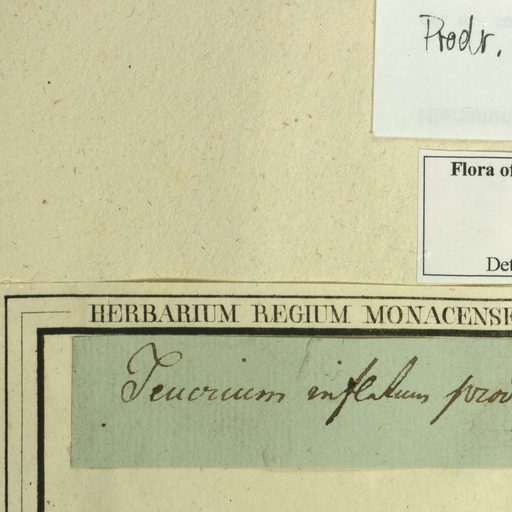 Prodr.
Flora of
Det
HERBARIUM REGIUM MONACENSE
Teucrium inflatum prod